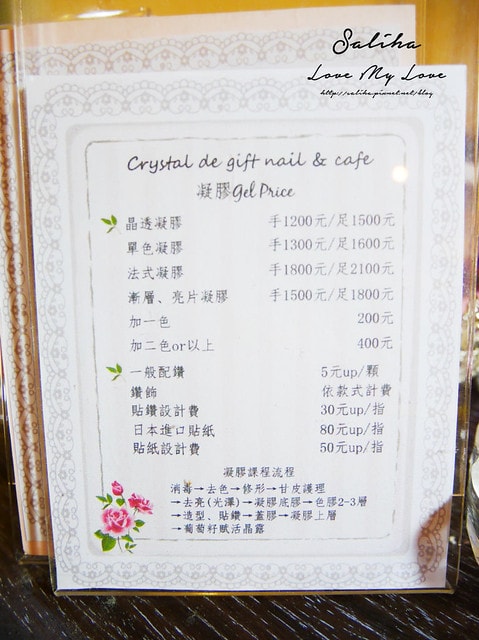 Saliha
Love My Love
http://saliha.pixnet.net/blog
Crystal de gift nail & cafe
凝膠Gel Price
晶透凝膠 手1200元/足1500元
單色凝膠 手1300元/足1600元
法式凝膠 手1800元/足2100元
漸層、亮片凝膠 手1500元/足1800元
加一色 200元
加二色or以上 400元
一般配鑽 5元up/顆
鑽飾 依款式計費
貼鑽設計費 30元up/指
日本進口貼紙 80元up/指
貼紙設計費 50元up/指
凝膠課程流程
消毒→去色→修形→甘皮護理
→去亮(光澤)→凝膠底膠→色膠2-3層
→造型、貼鑽→蓋膠→凝膠上層
→葡萄籽賦活晶露